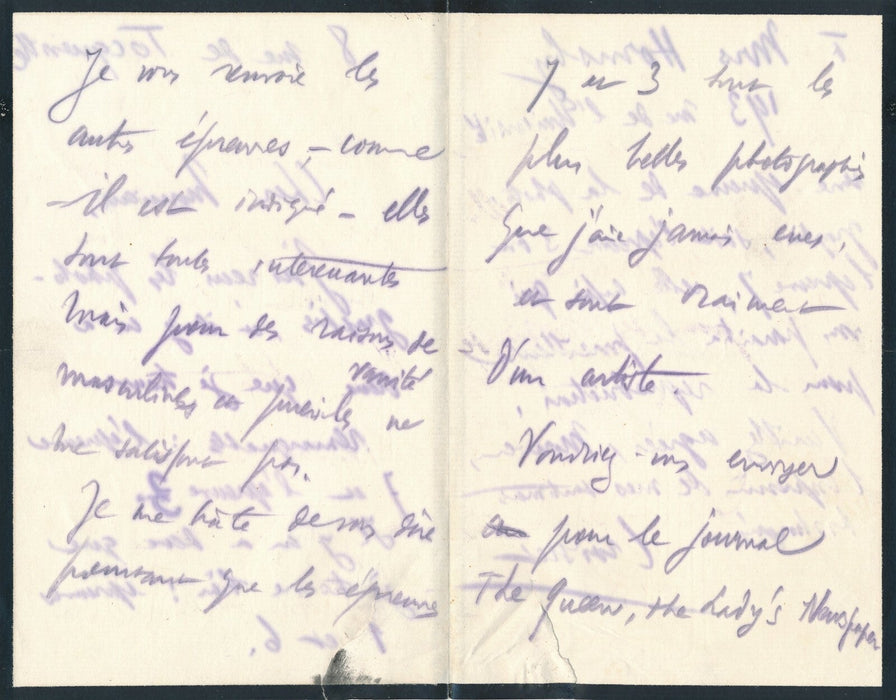 Je vous renvoie les
autres épreuves, – comme
il est indiqué – elles
sont toutes intéressantes
mais pour des raisons de
vanité
masculines et puériles ne
me satisfont pas.
Je me hâte de vous dire
pourtant que les épreuves
7 et 3 sont les
plus belles photographies
que j'aie jamais eues,
et sont vraiment
d'un artiste.
Voudriez-vous envoyer
pour le journal
The Queen, the Lady's Newspaper